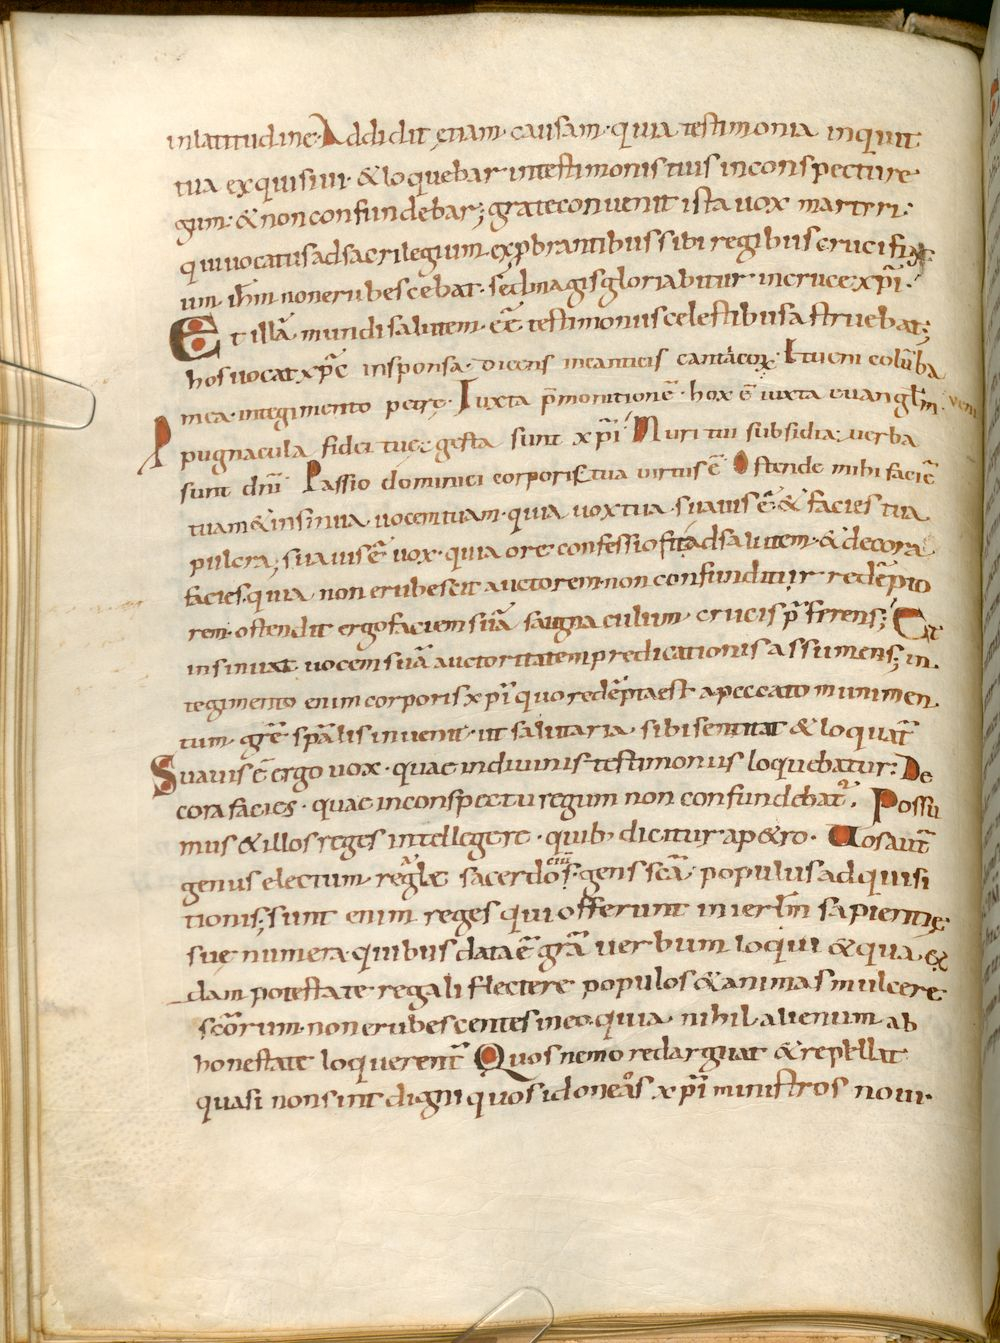 inlatitudine· Addidit etiam· causam· quia testimonia inquit
tua exquisiui· & loquebar intestimoniis tuis inconspecture
gum· & nonconfundebar; grateconuenit ista uox marteri·
quiuocatusadsacrilegium exp̱brantibus sibi regibus crucifix
um ih̅m nonerubescebat· sed magis gloriabitur incruce xp̅i·
Et illā mundi salutem· eē testimoniiscelestibus astruebat;
hos uocat xp̅c insponsa· dicens incanticis canticorꝝ· Et ueni colūba
mea· integimento petrę· Iuxta p̅monitionē· hox ē iuxta euangl̅m· veni
Propugnacula fidei tuę gesta sunt xp̅i Muri tui subsidia; uerba
sunt dn̅i Passio dominici corporis tua uirtus ē Ostende mihi faciē
tuam & insinua uocem tuam· quia uox tua suauis ē & facies tua
pulcra; suauis ē uox· quia ore confessio fit ad salutem· & decora
facies· quia non erubescit auctorem non confunditur redēpto
rem· ostendit ergo faciem suā signaculum crucis p̅ferens; Et
insinuat uocem suā auctoritatem predicationis assumens; in
tegimento enim corporis xp̅i quo redēpta est a peccato munimen
tum· grē spālis inuenit· ut salutaria sibi sentiat & loquat̅
Suauis ē ergo uox· quae indiuinis testimoniis loquebatur: De
cora facies· quae inconspectu regum non confundebat̅. Possu
mus & illos reges intellegere· quib; dicitur ap&ro· Uos aut̅
genus electum regale sacerdotium· gens sc̅a populus adquisi
tionis; sunt enim reges qui offerunt in ierl̅m sapientię
suę numera· quibus data ē grā uerbum loqui & qua
dam potestate regali flectere populos & animas mulcere
sc̅orum· non erubescentes in eo· quia nihil alienum ab
honestate loquerent̅ Quos nemo redarguat & repellat
quasi non sint digni quos idoneos xp̅i ministros noui·